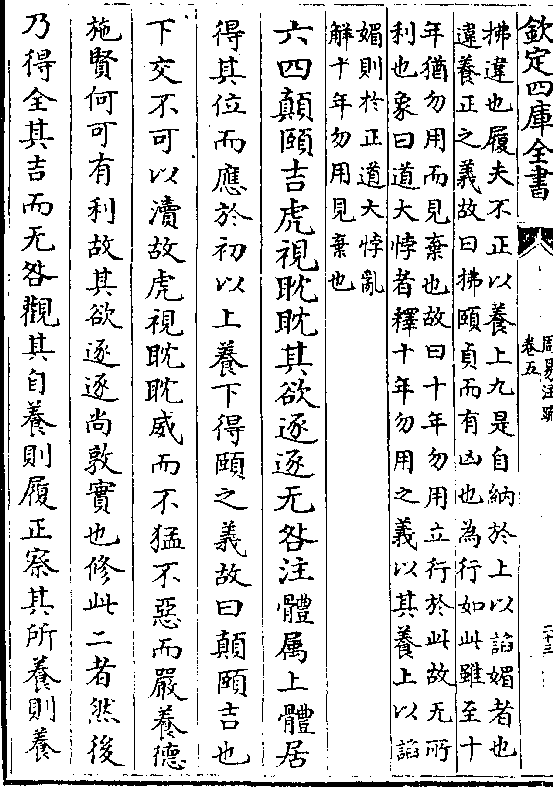 欽定四庫全書
周易注疏
卷五
拂違也履夫不正以養上九是自納於上以諂媚者也
違養正之義故曰拂頤貞而有凶也為行如此雖至十
年猶勿用而見棄也故曰十年勿用立行於此故无所
利也象曰道大悖者釋十年勿用之義以其養上以諂
媚則於正道大悖亂
解十年勿用見棄也
六四顛頤吉虎視眈眈其欲逐逐无咎注體属上體居
得其位而應於初以上養下得頤之義故曰顛頤吉也
下交不可以瀆故虎視眈眈威而不猛不惡而嚴養德
施賢何可有利故其欲逐逐尚敦實也修此二者然後
乃得全其吉而无咎觀其自養則履正察其所養則養